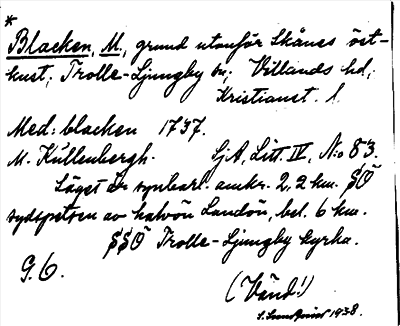 *
Blacken, M., grund utanför Skånes öst-
kust; Trolle-Ljungby sn; Villands hd;
Kristianst. l.
Med: blacken 1737.
M. Kullenbergh. Sj A, Litt. IV, N:o 83.
Läget är synbarl. omkr. 2,2 km. SÖ
sydspetsen av halvön Landön, bel. 6 km.
SSÖ Trolle-Ljungby kyrka.
G. Ö.
(Vänd!)
1938.